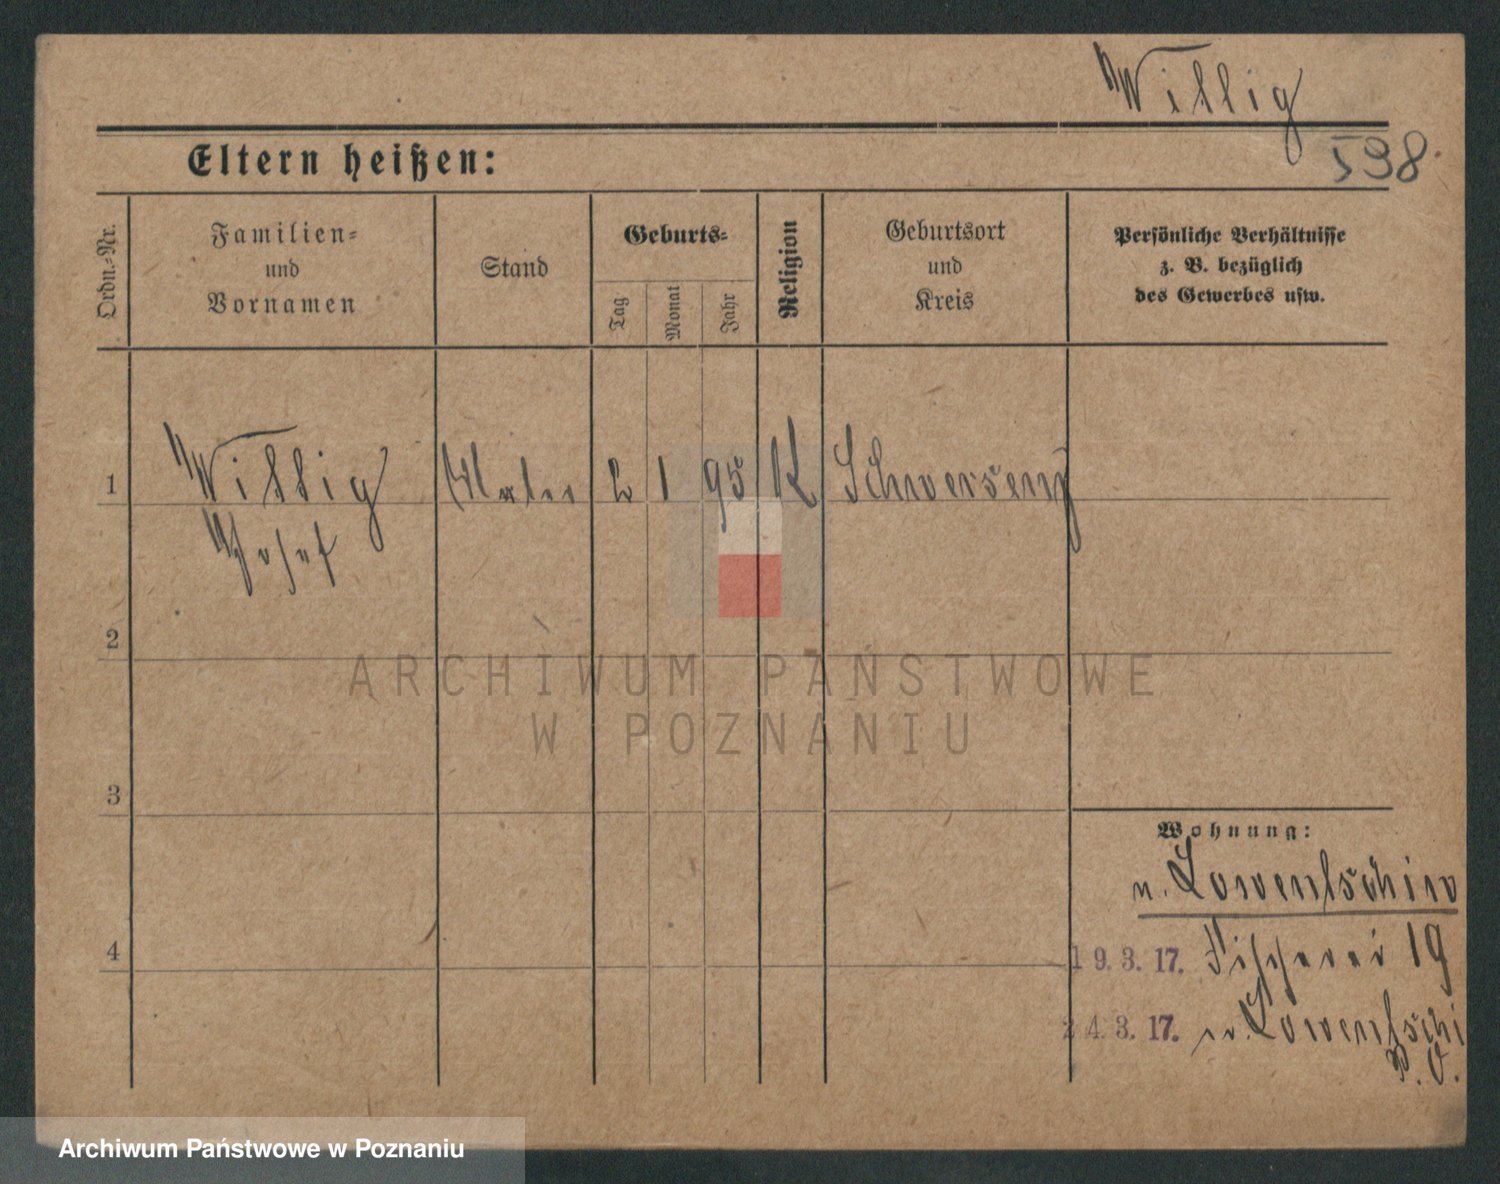 Willig
598.
Eltern heißen:
Ordn.-Nr.
Familien-
und
Vornamen
Stand
Geburts-
Tag
Monat
Jahr
Religion
Geburtsort
und
Kreis
Persönliche Verhältnisse
z. B. bezüglich
des Gewerbes usw.
1 Willig Maler 2 1 95 K Schwersenz
Josef
2
3
4
Wohnung:
n. Lowentschin
19.3.17. Fischerei 19
24.3.17. n. Lowentschi
P. O.
ARCHIWUM PAŃSTWOWE
W POZNANIU
Archiwum Państwowe w Poznaniu